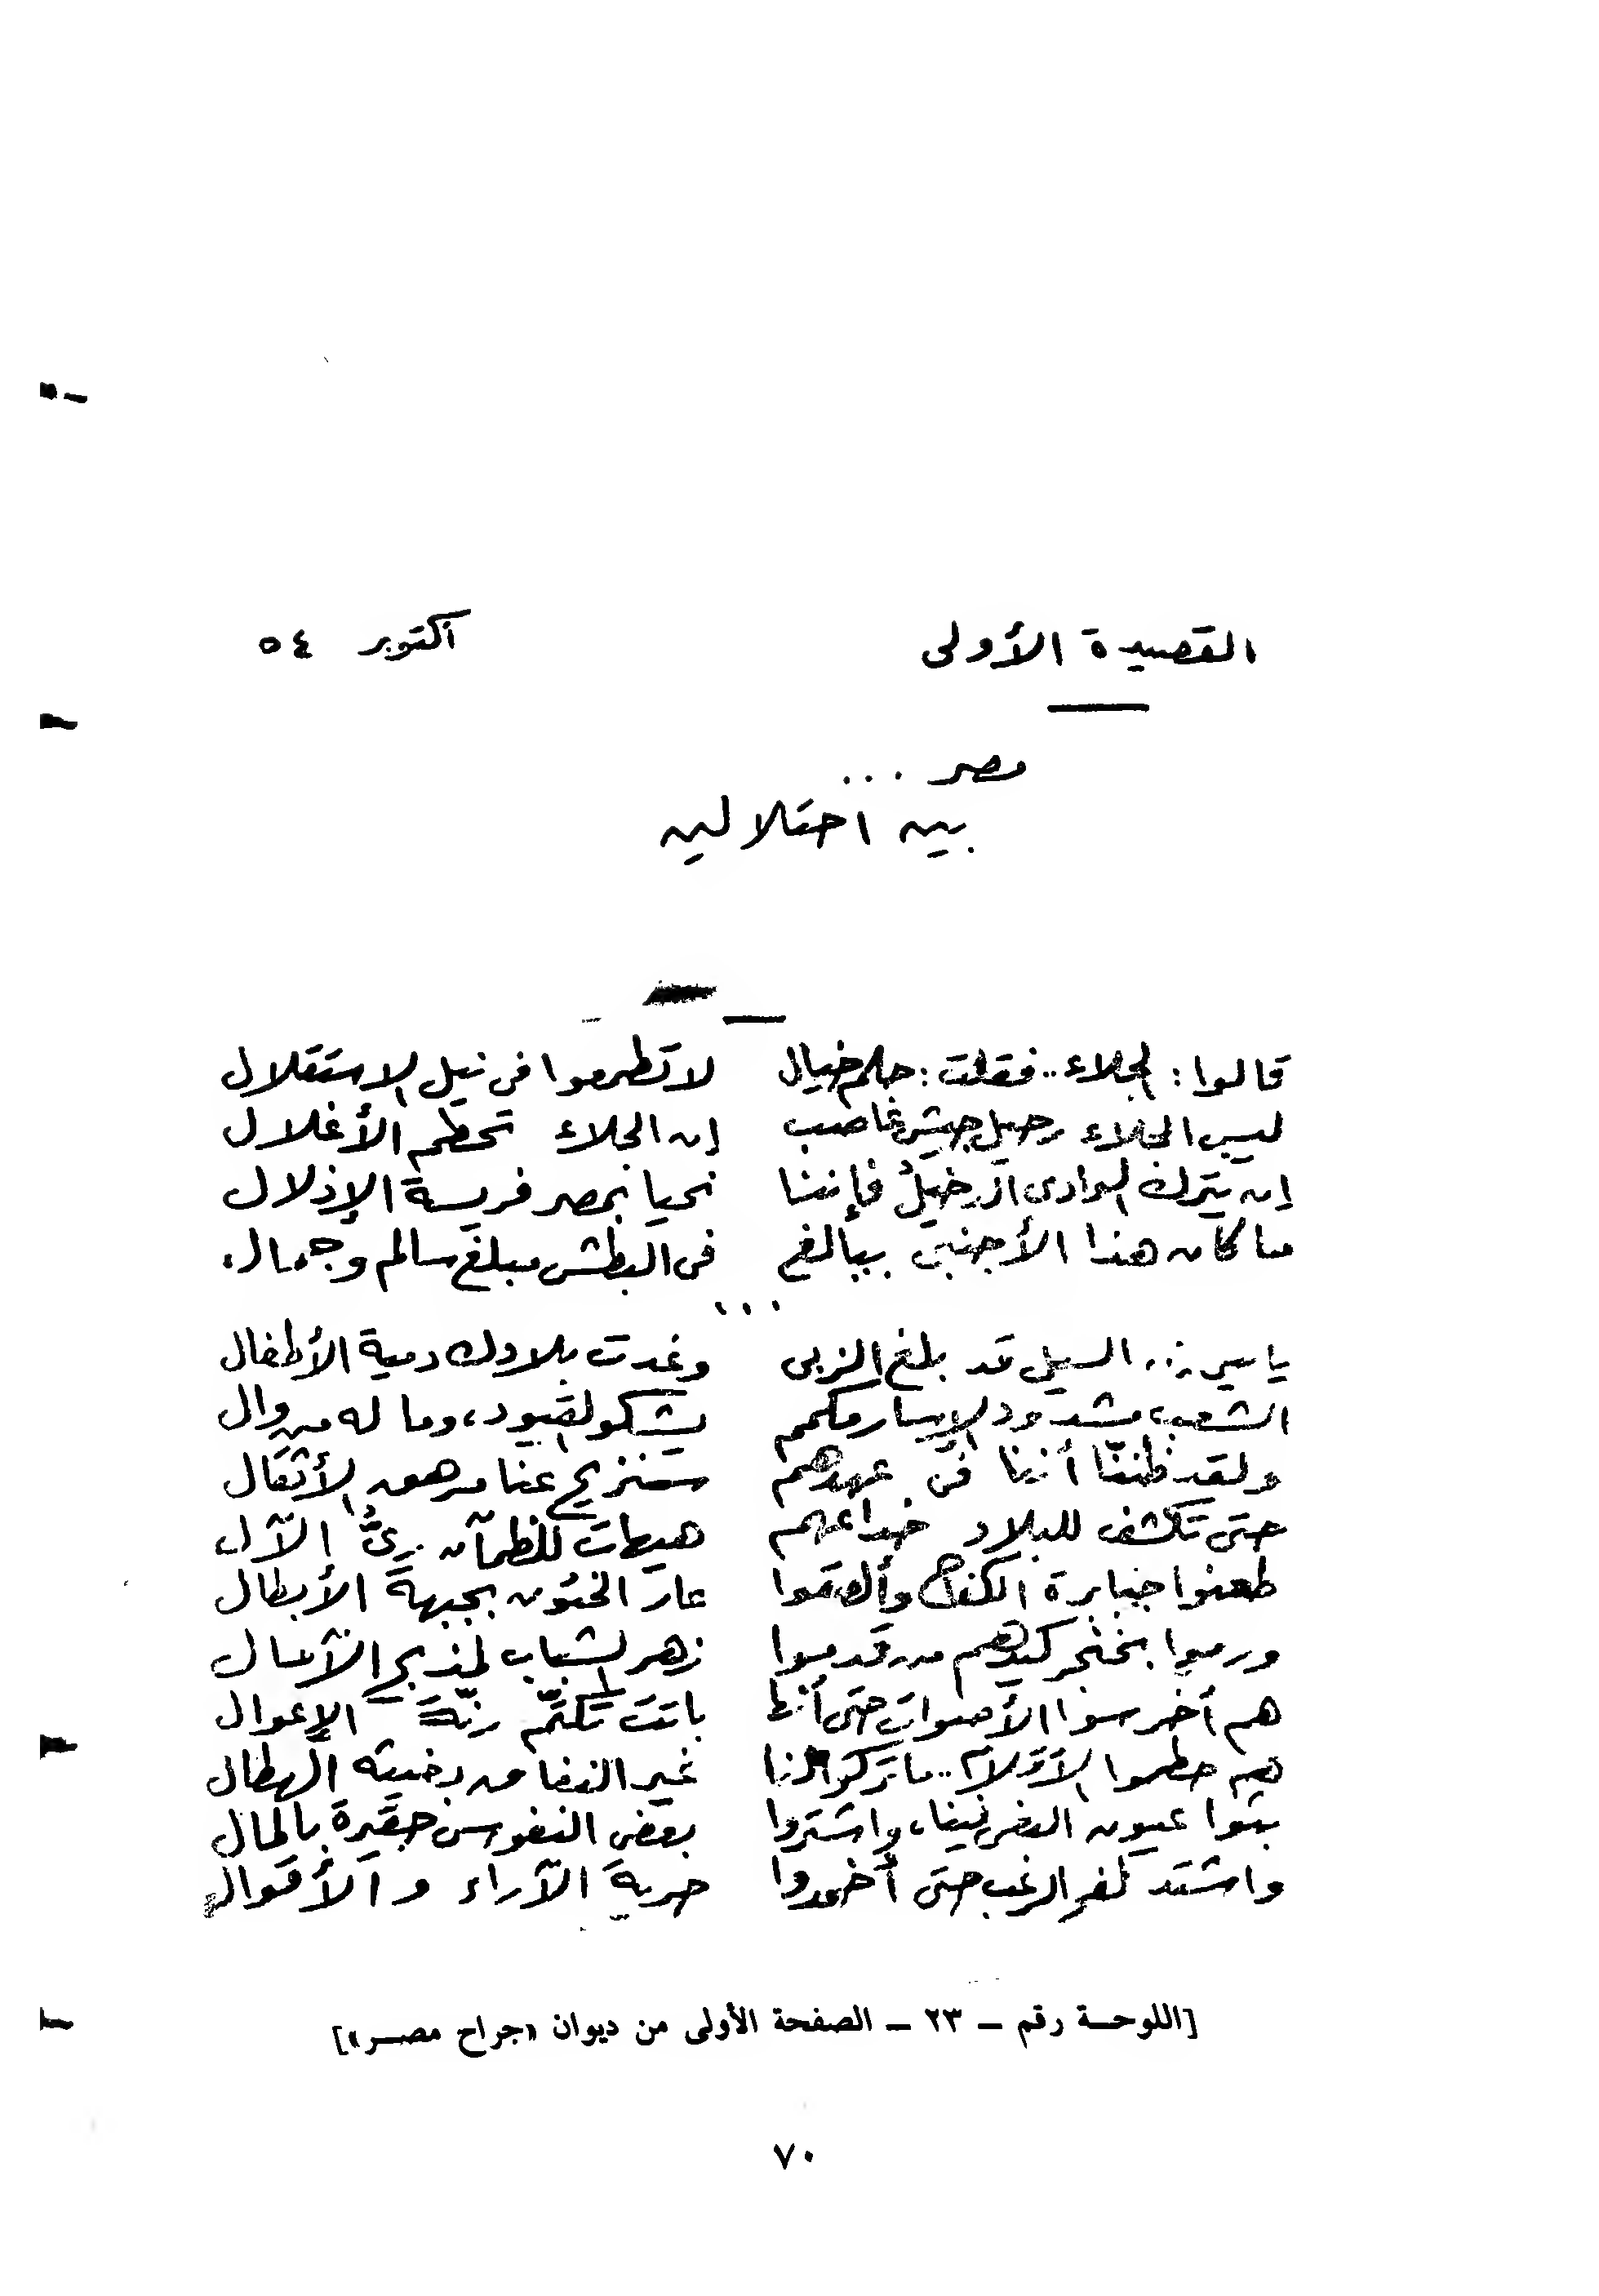 القصيدة الأولى أكتوبر ٥٤
مصر ...
بين احتلالين
قالوا : الجلاء .. فقلت : حلم خيال لا تطمعوا فى نيل الاستقلال
ليس الجلاء رحيل جيش غاصب إن الجلاء تحطم الأغلال
إن يترك الوادى الدخيلُ فإننا نحيا بمصر فريسة الإذلال
ما كان هذا الأجنبى ببالغ فى البطش مبلغ سالم وجمال
...
يا نيل .. السيل قد بلغ الزبى وغدت بلادك دمية الأطفال
الشعب مشدود الإسار مكمم يشكو القيود، وما له من وال
ولقد ظننّا أننا فى عهدهم سنزيح عنا مرهق الأثقال
حتى تكشف للبلاد خداعهم هيهات للظمآن رىُّ الآل
طعنوا جبابرة الكفاح وألصقوا عار الخئون بجبهة الأبطال
ورموا بخنجر كيدهم من قدموا زهر الشباب لمذبح الآمال
هم أخرسوا الأصوات حتى أنها باتت تكتّم رنّةَ الإعوال
هم حطموا الأقلام .. ما تركوا لنا غير النفاق بغيثه الهطال
بثوا عيون الغدر فينا، واشتروا بعض النفوس حقيرةً بالمال
واشتد لفح الرعب حتى أخمدوا حرية الآراء والأقوال
[اللوحة رقم – ٢٣ – الصفحة الأولى من ديوان «جراح مصر»]
٧٠